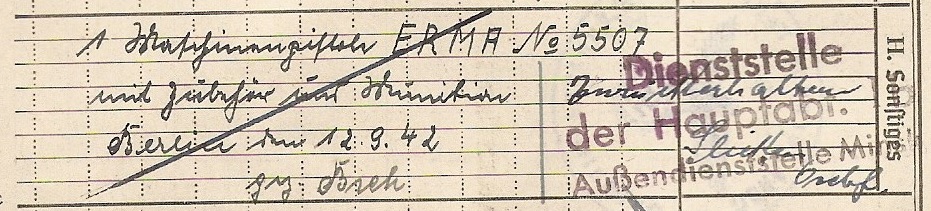 1 Maschinenpistole ERMA No 5507
mit Zubehör und Munition
Berlin den 12.9.42
gez. Bsch
Dienststelle
der Hauptabt.
Außendienststelle Min
H. Sonstiges